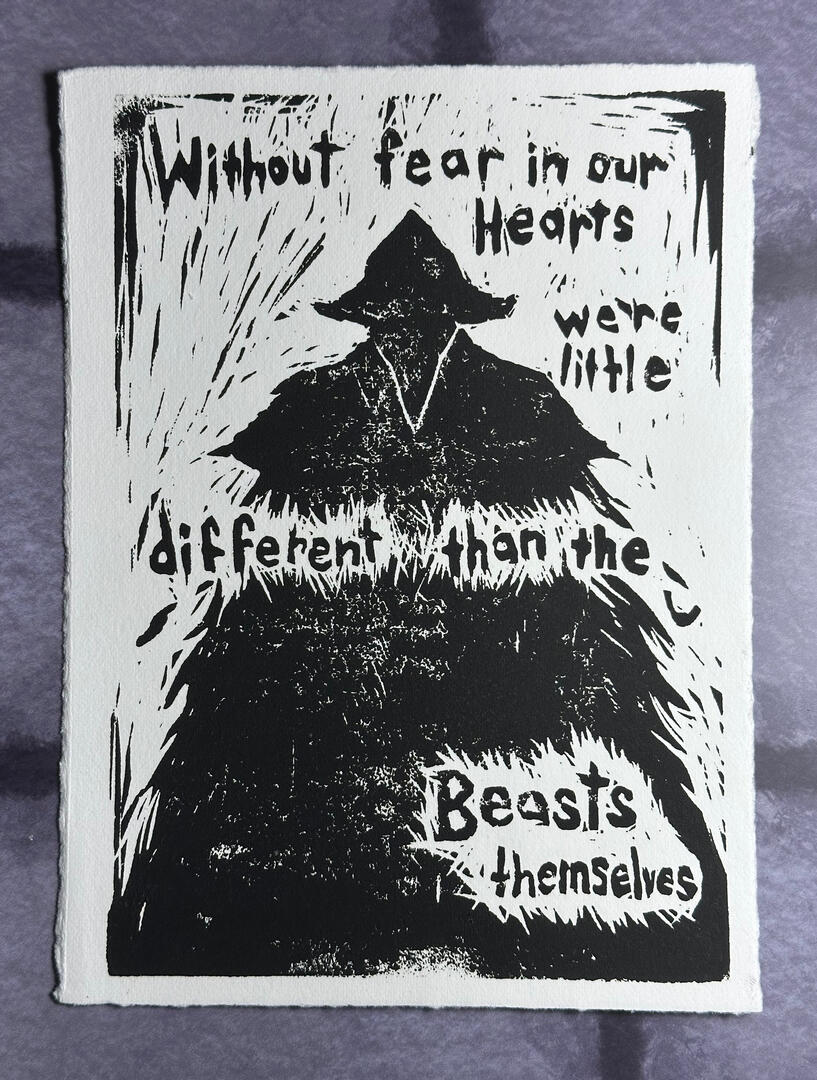 Without fear in our
Hearts
we're
little
different than the
Beasts
themselves